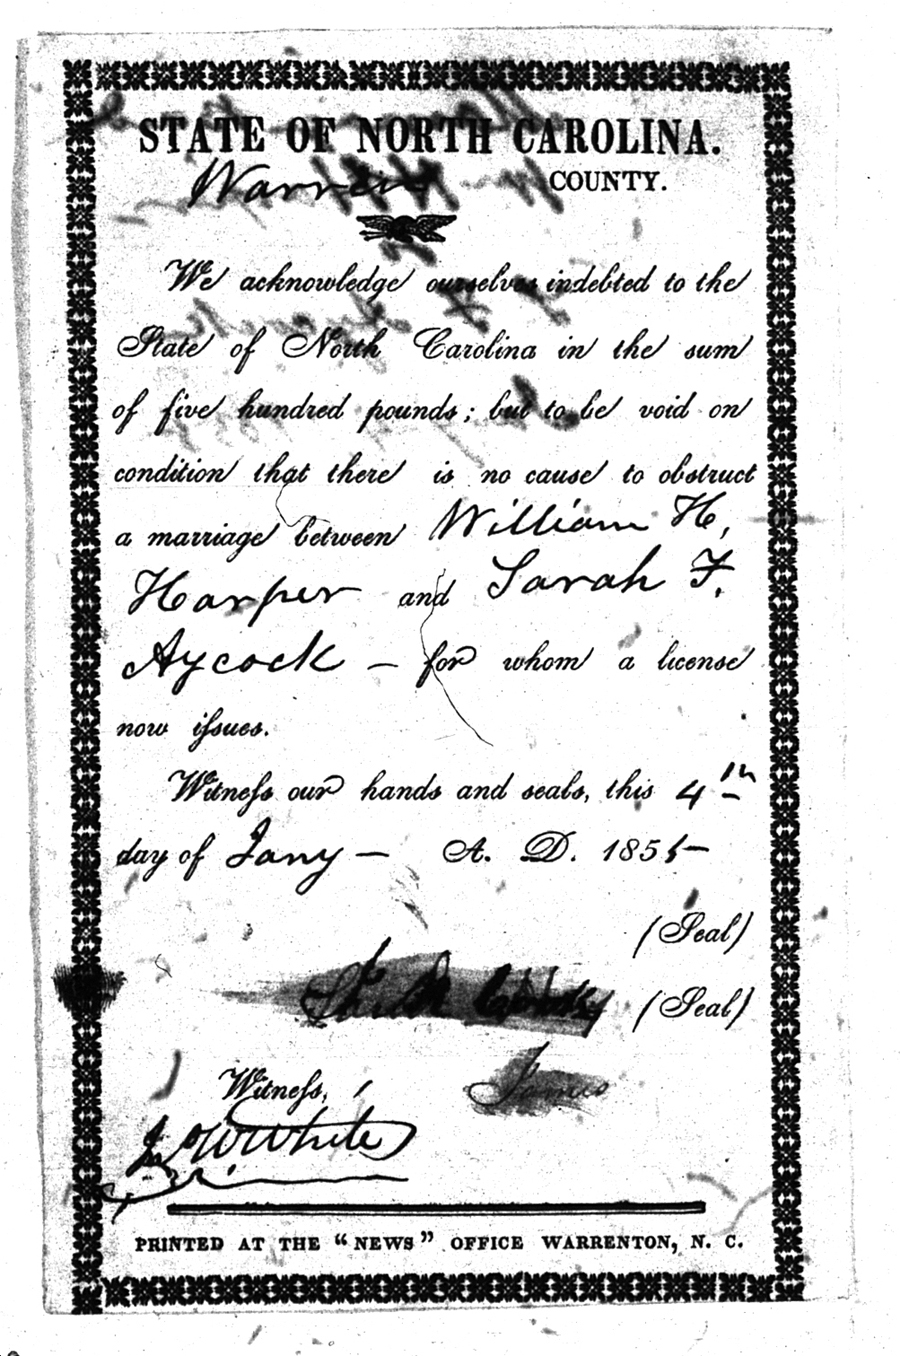 STATE OF NORTH CAROLINA.
Warren COUNTY.
We acknowledge ourselves indebted to the
State of North Carolina in the sum
of five hundred pounds; but to be void on
condition that there is no cause to obstruct
a marriage between William H,
Harper and Sarah F.
Aycock - for whom a license
now issues.
Witness our hands and seals, this 4th
day of Jany - A. D. 1855
(Seal)
(Seal)
Witness,
White
PRINTED AT THE "NEWS" OFFICE WARRENTON, N. C.